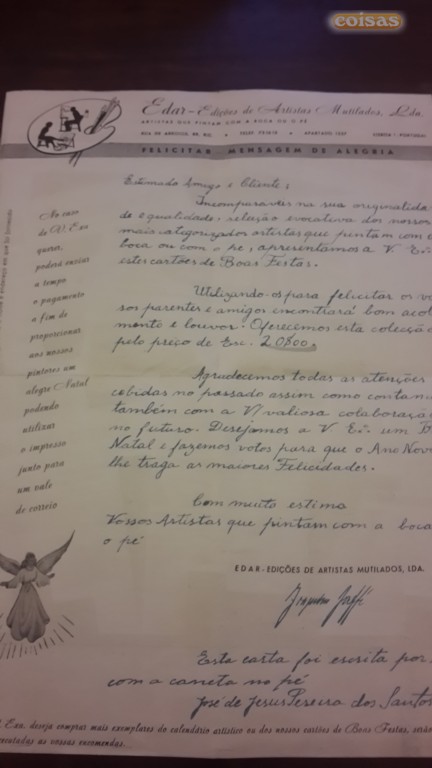 coisas
Edar-Edições de Artistas Mutilados, Lda.
ARTISTAS QUE PINTAM COM A BOCA OU O PÉ
FELICITAR MENSAGEM DE ALEGRIA
Estimado Amigo e Cliente:
Incomparáveis na sua originalida
de e qualidade, seleção evocativa dos nossos
mais categorizados artistas que pintam com a
boca ou com o pé, apresentamos a V. E.ª
estes cartões de Boas Festas.
Utilizando-os para felicitar os vos
sos parentes e amigos encontrará bom acolhi
mento e louvor. Oferecemos esta colecção
pelo preço de Esc. 20$00.
Agradecemos todas as atenções
cebidas no passado assim como contamos
também com a V/ valiosa colaboração
no futuro. Desejamos a V. E.ª um
Natal e fazemos votos para que o Ano Novo
lhe traga as maiores Felicidades.
Com muito estima
Vossos Artistas que pintam com a boca
o pé
No caso
de V. Exa
queira,
poderá enviar
a tempo
o pagamento
a fim de
proporcionar
aos nossos
pintores um
alegre Natal
podendo
utilizar
o impresso
junto para
um vale
de correio
EDAR-EDIÇÕES DE ARTISTAS MUTILADOS, LDA.
Esta carta foi escrita por
com a caneta no pé
José de Jesus Pereira dos Santos
Exa. deseja comprar mais exemplares do calendário artístico ou dos nossos cartões de Boas Festas, serão
executadas as vossas encomendas.